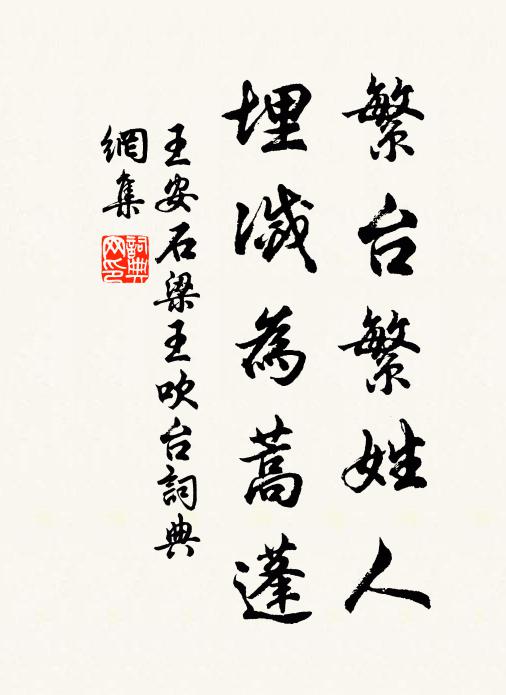 繁台繁姓人
埋滅為蒿蓬
王安石梁王吹台詞典
網集
詞典
网印